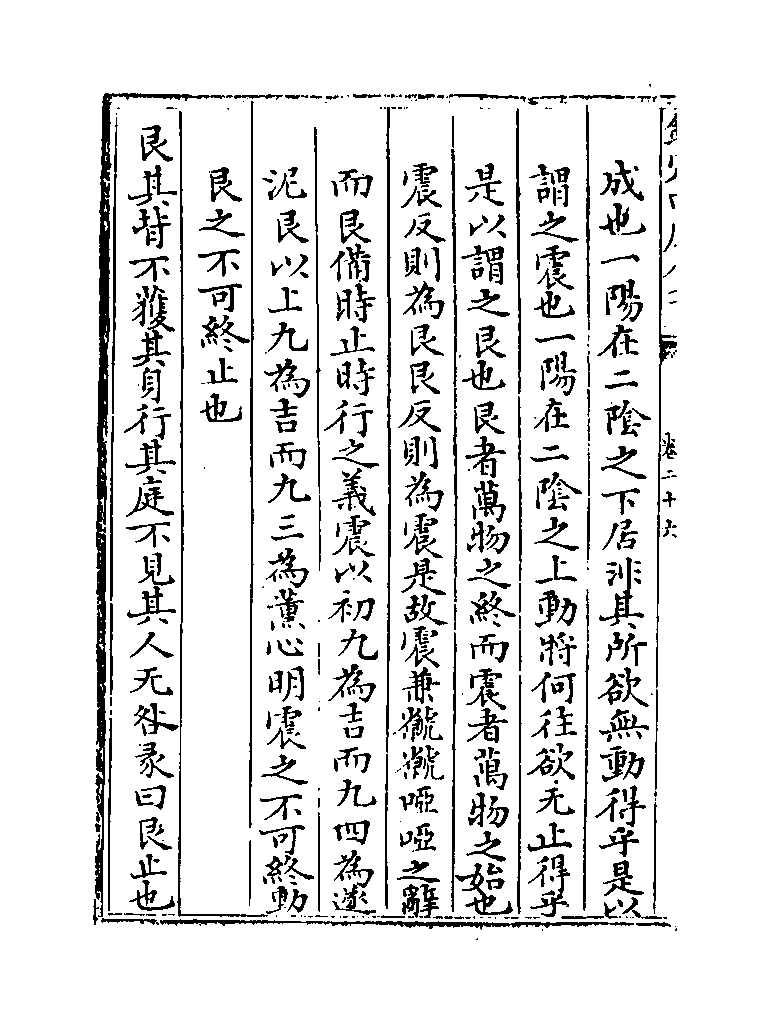 成也一陽在二陰之下居非其所欲無動得乎是以
謂之震也一陽在二陰之上動將何往欲无止得乎
是以謂之艮也艮者萬物之終而震者萬物之始也
震反則為艮艮反則為震是故震兼虩虩啞啞之辭
而艮備時止時行之義震以初九為吉而九四為遂
泥艮以上九為吉而九三為薰心明震之不可終動
艮之不可終止也
艮其背不獲其身行其庭不見其人无咎彖曰艮止也
卷二十六